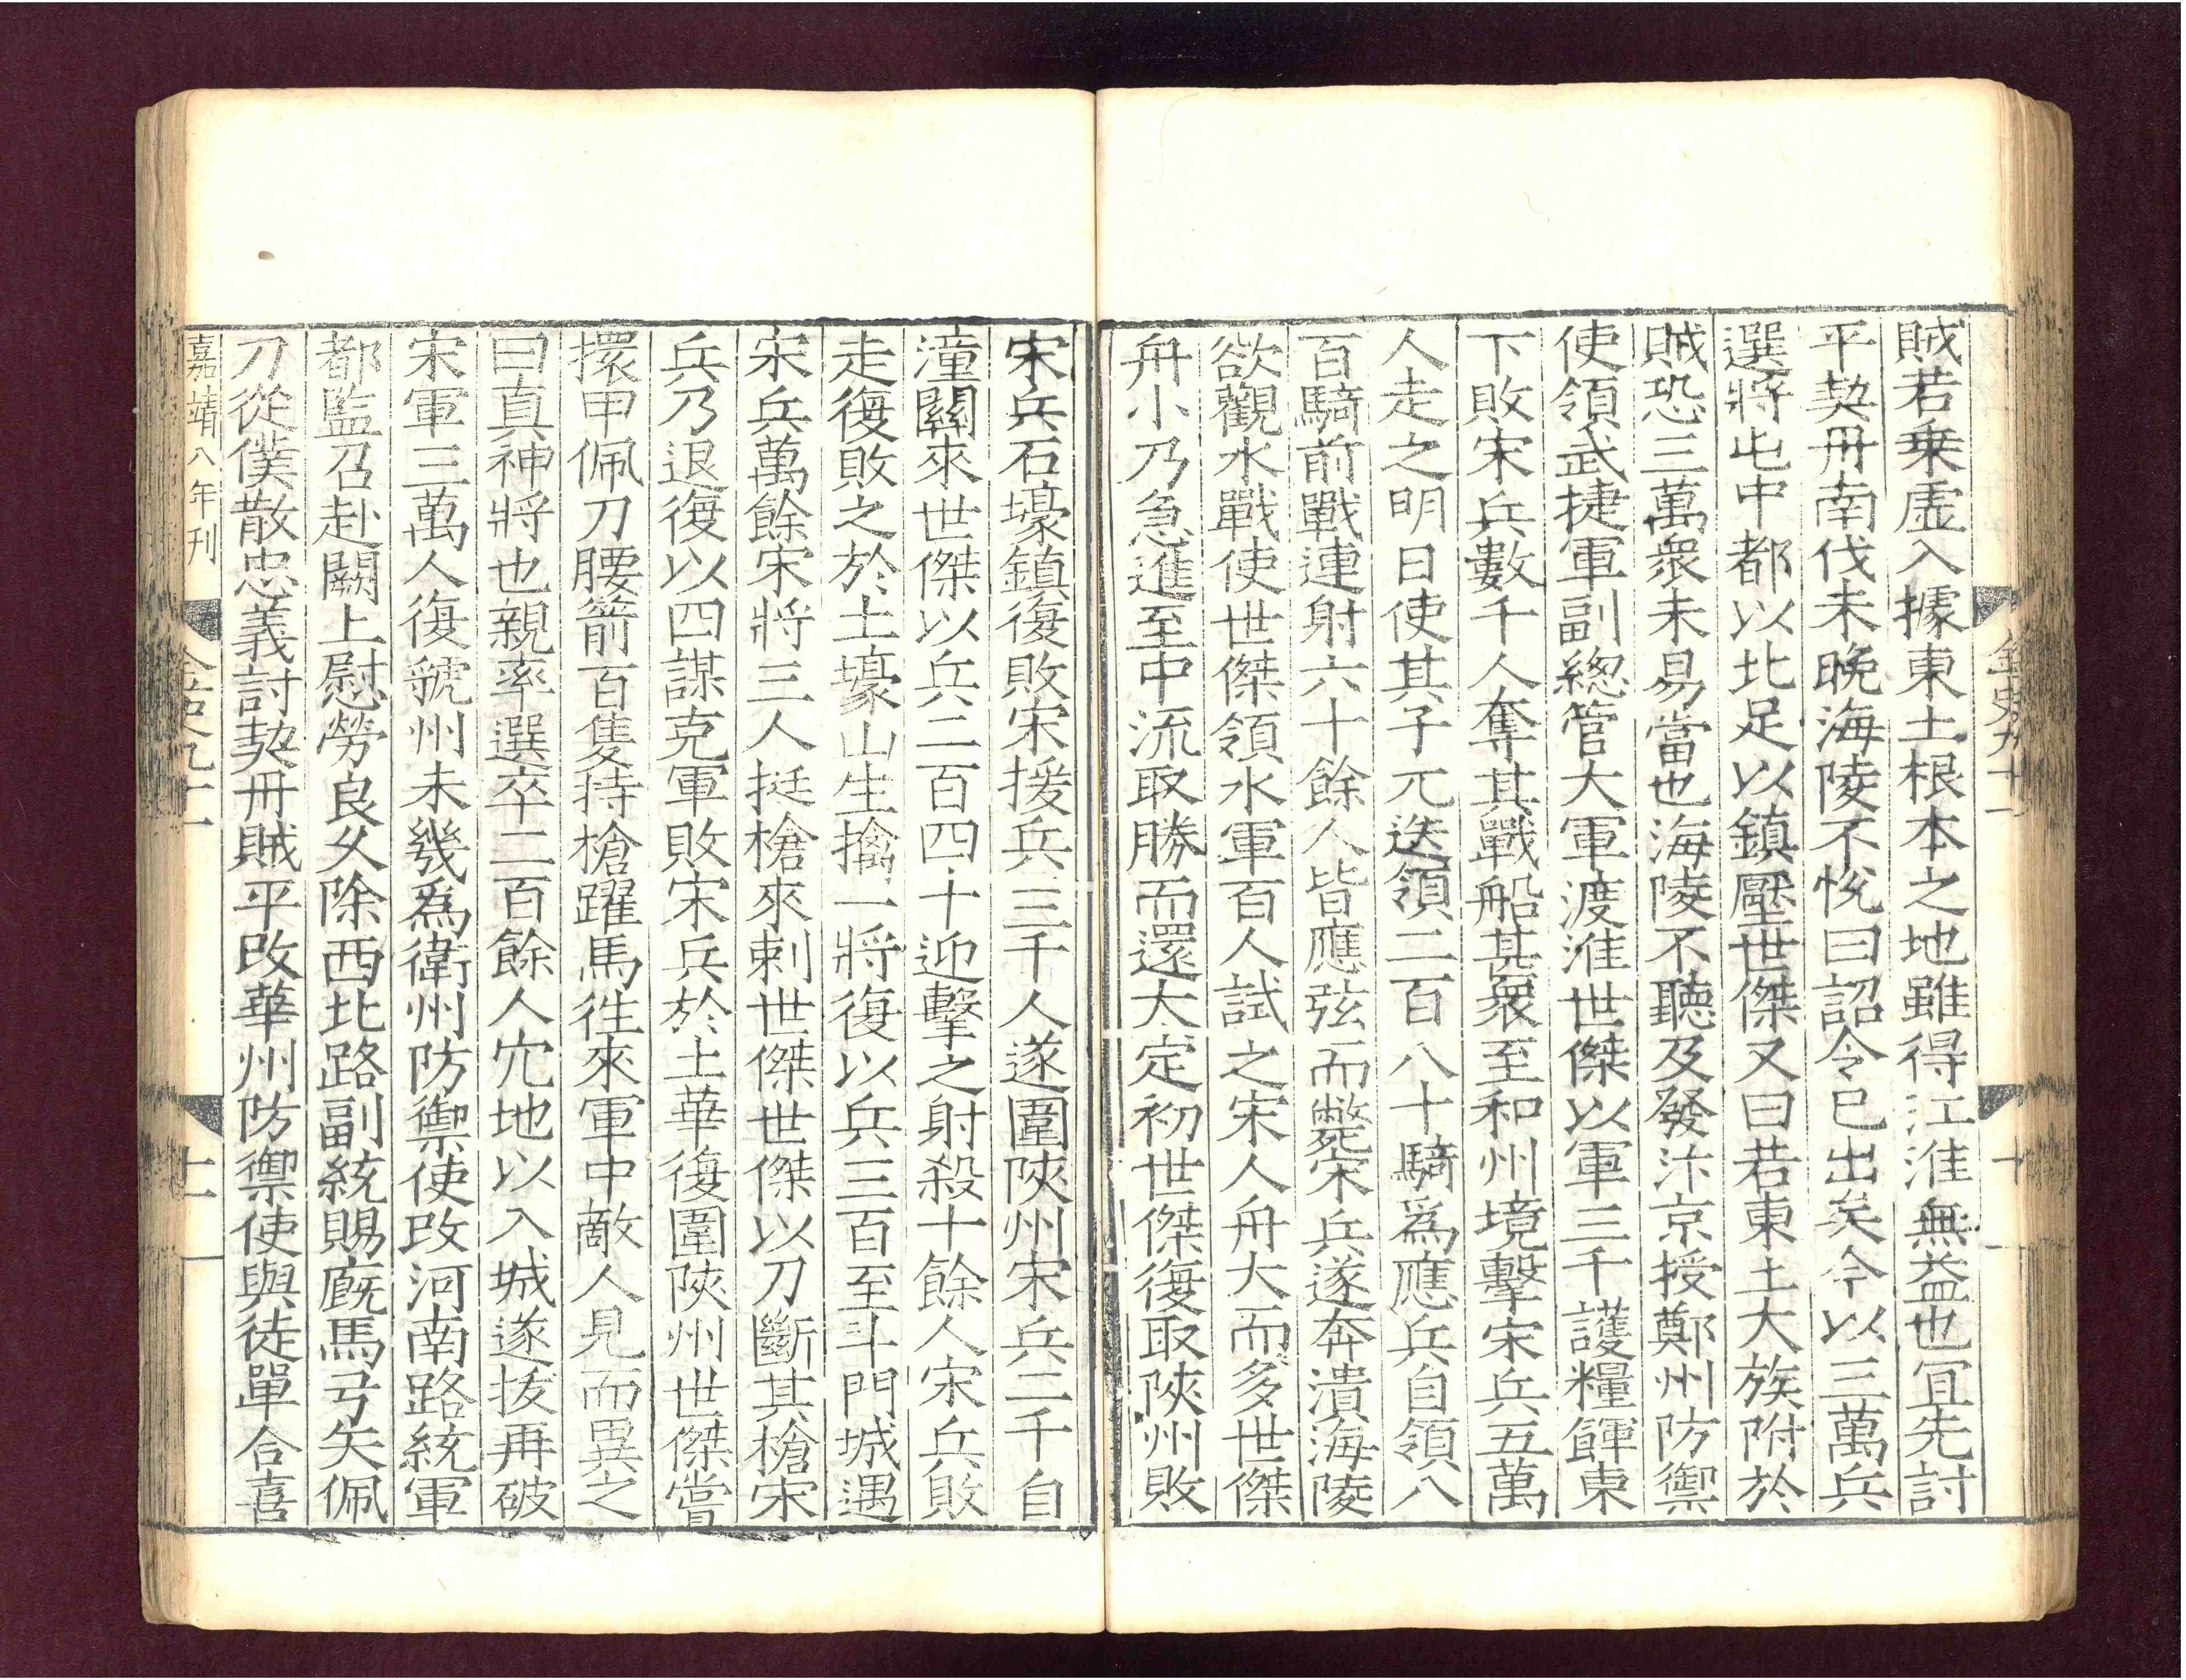 賊若乗虛入據東土根本之地雖得江淮無益也冝先討
平契丹南伐未晚海陵不恱曰詔令已出矣今以三萬兵
選將屯中都以北足以鎮壓世傑又曰若東土大族附於
賊恐三萬衆未易當也海陵不聽及發汴京授鄭州防禦
使領武捷軍副總管大軍渡淮世傑以軍三千護糧餫東
下敗宋兵數千人奪其戰船甚衆至和州境擊宋兵五萬
人走之明日使其子兀迭領二百八十騎爲應兵自領八
百騎前戰連射六十餘人皆應弦而斃宋兵遂奔潰海陵
欲觀水戰使世傑領水軍百人試之宋人舟大而多世傑
舟小乃急進至中流取勝而還大定初世傑復取陜州敗
宋兵石壕鎮復敗宋援兵三千人遂圍陜州宋兵二千自
潼關來世傑以兵二百四十迎擊之射殺十餘人宋兵敗
走復敗之於土壕山生擒一將復以兵三百至斗門城遇
宋兵萬餘宋將三人挺槍來剌世傑世傑以刀斷其槍宋
兵乃退復以四謀克軍敗宋兵於土華復圍陜州世傑嘗
擐甲佩刀腰箭百隻持槍躍馬往來軍中敵人見而異之
曰真神將也親率選卒二百餘人穴地以入城遂拔再破
宋軍三萬人復虢州未幾爲衛州防禦使改河南路統軍
都監召赴闕上慰勞良久除西北路副統賜廐馬弓矢佩
刀從僕散忠義討契丹賊平改華州防禦使與徒單合喜
嘉靖八年刊
金史九十一
十
金史九十一
十一